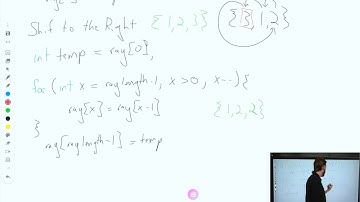 Shift to the Right {1,2,3} {3,1,2}
int temp = ray[0];
for (int x = ray.length-1; x>0; x--){
ray[x] = ray[x-1] {1,2,2}
}
ray[ray.length-1] = temp